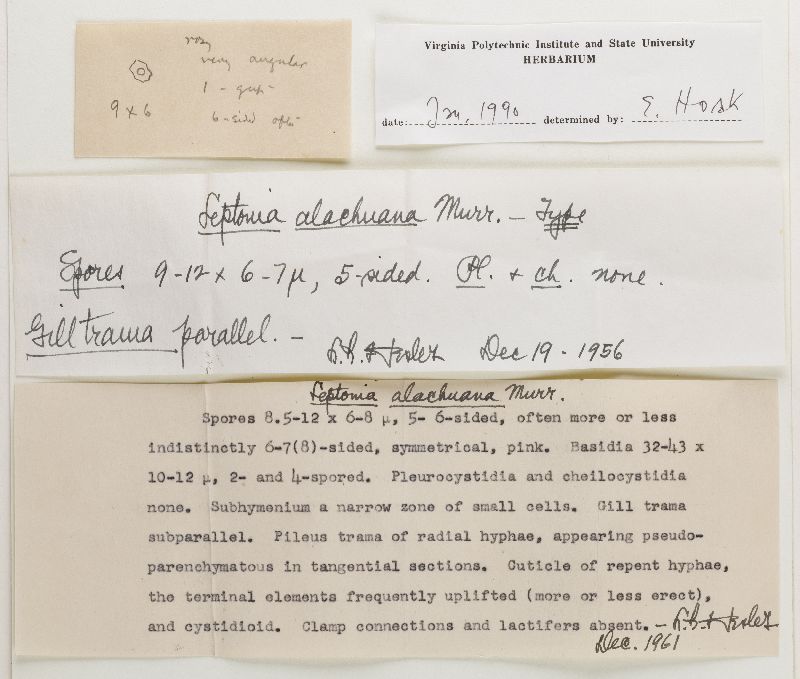 rosy
very angular
1 - gutt
9 x 6
6-sided often
Virginia Polytechnic Institute and State University
HERBARIUM
date: Jan, 1990 determined by: E. Hosk
Leptonia alachuana Murr. — Type
Spores 9-12 x 6-7µ, 5-sided. Pl. & ch. none.
Gill trama parallel. — L.R. Hesler Dec 19 - 1956
Leptonia alachuana Murr.
Spores 8.5-12 x 6-8 µ, 5- 6-sided, often more or less
indistinctly 6-7(8)-sided, symmetrical, pink. Basidia 32-43 x
10-12 µ, 2- and 4-spored. Pleurocystidia and cheilocystidia
none. Subhymenium a narrow zone of small cells. Gill trama
subparallel. Pileus trama of radial hyphae, appearing pseudo-
parenchymatous in tangential sections. Cuticle of repent hyphae,
the terminal elements frequently uplifted (more or less erect),
and cystidioid. Clamp connections and lactifers absent. — L.R. Hesler
Dec. 1961